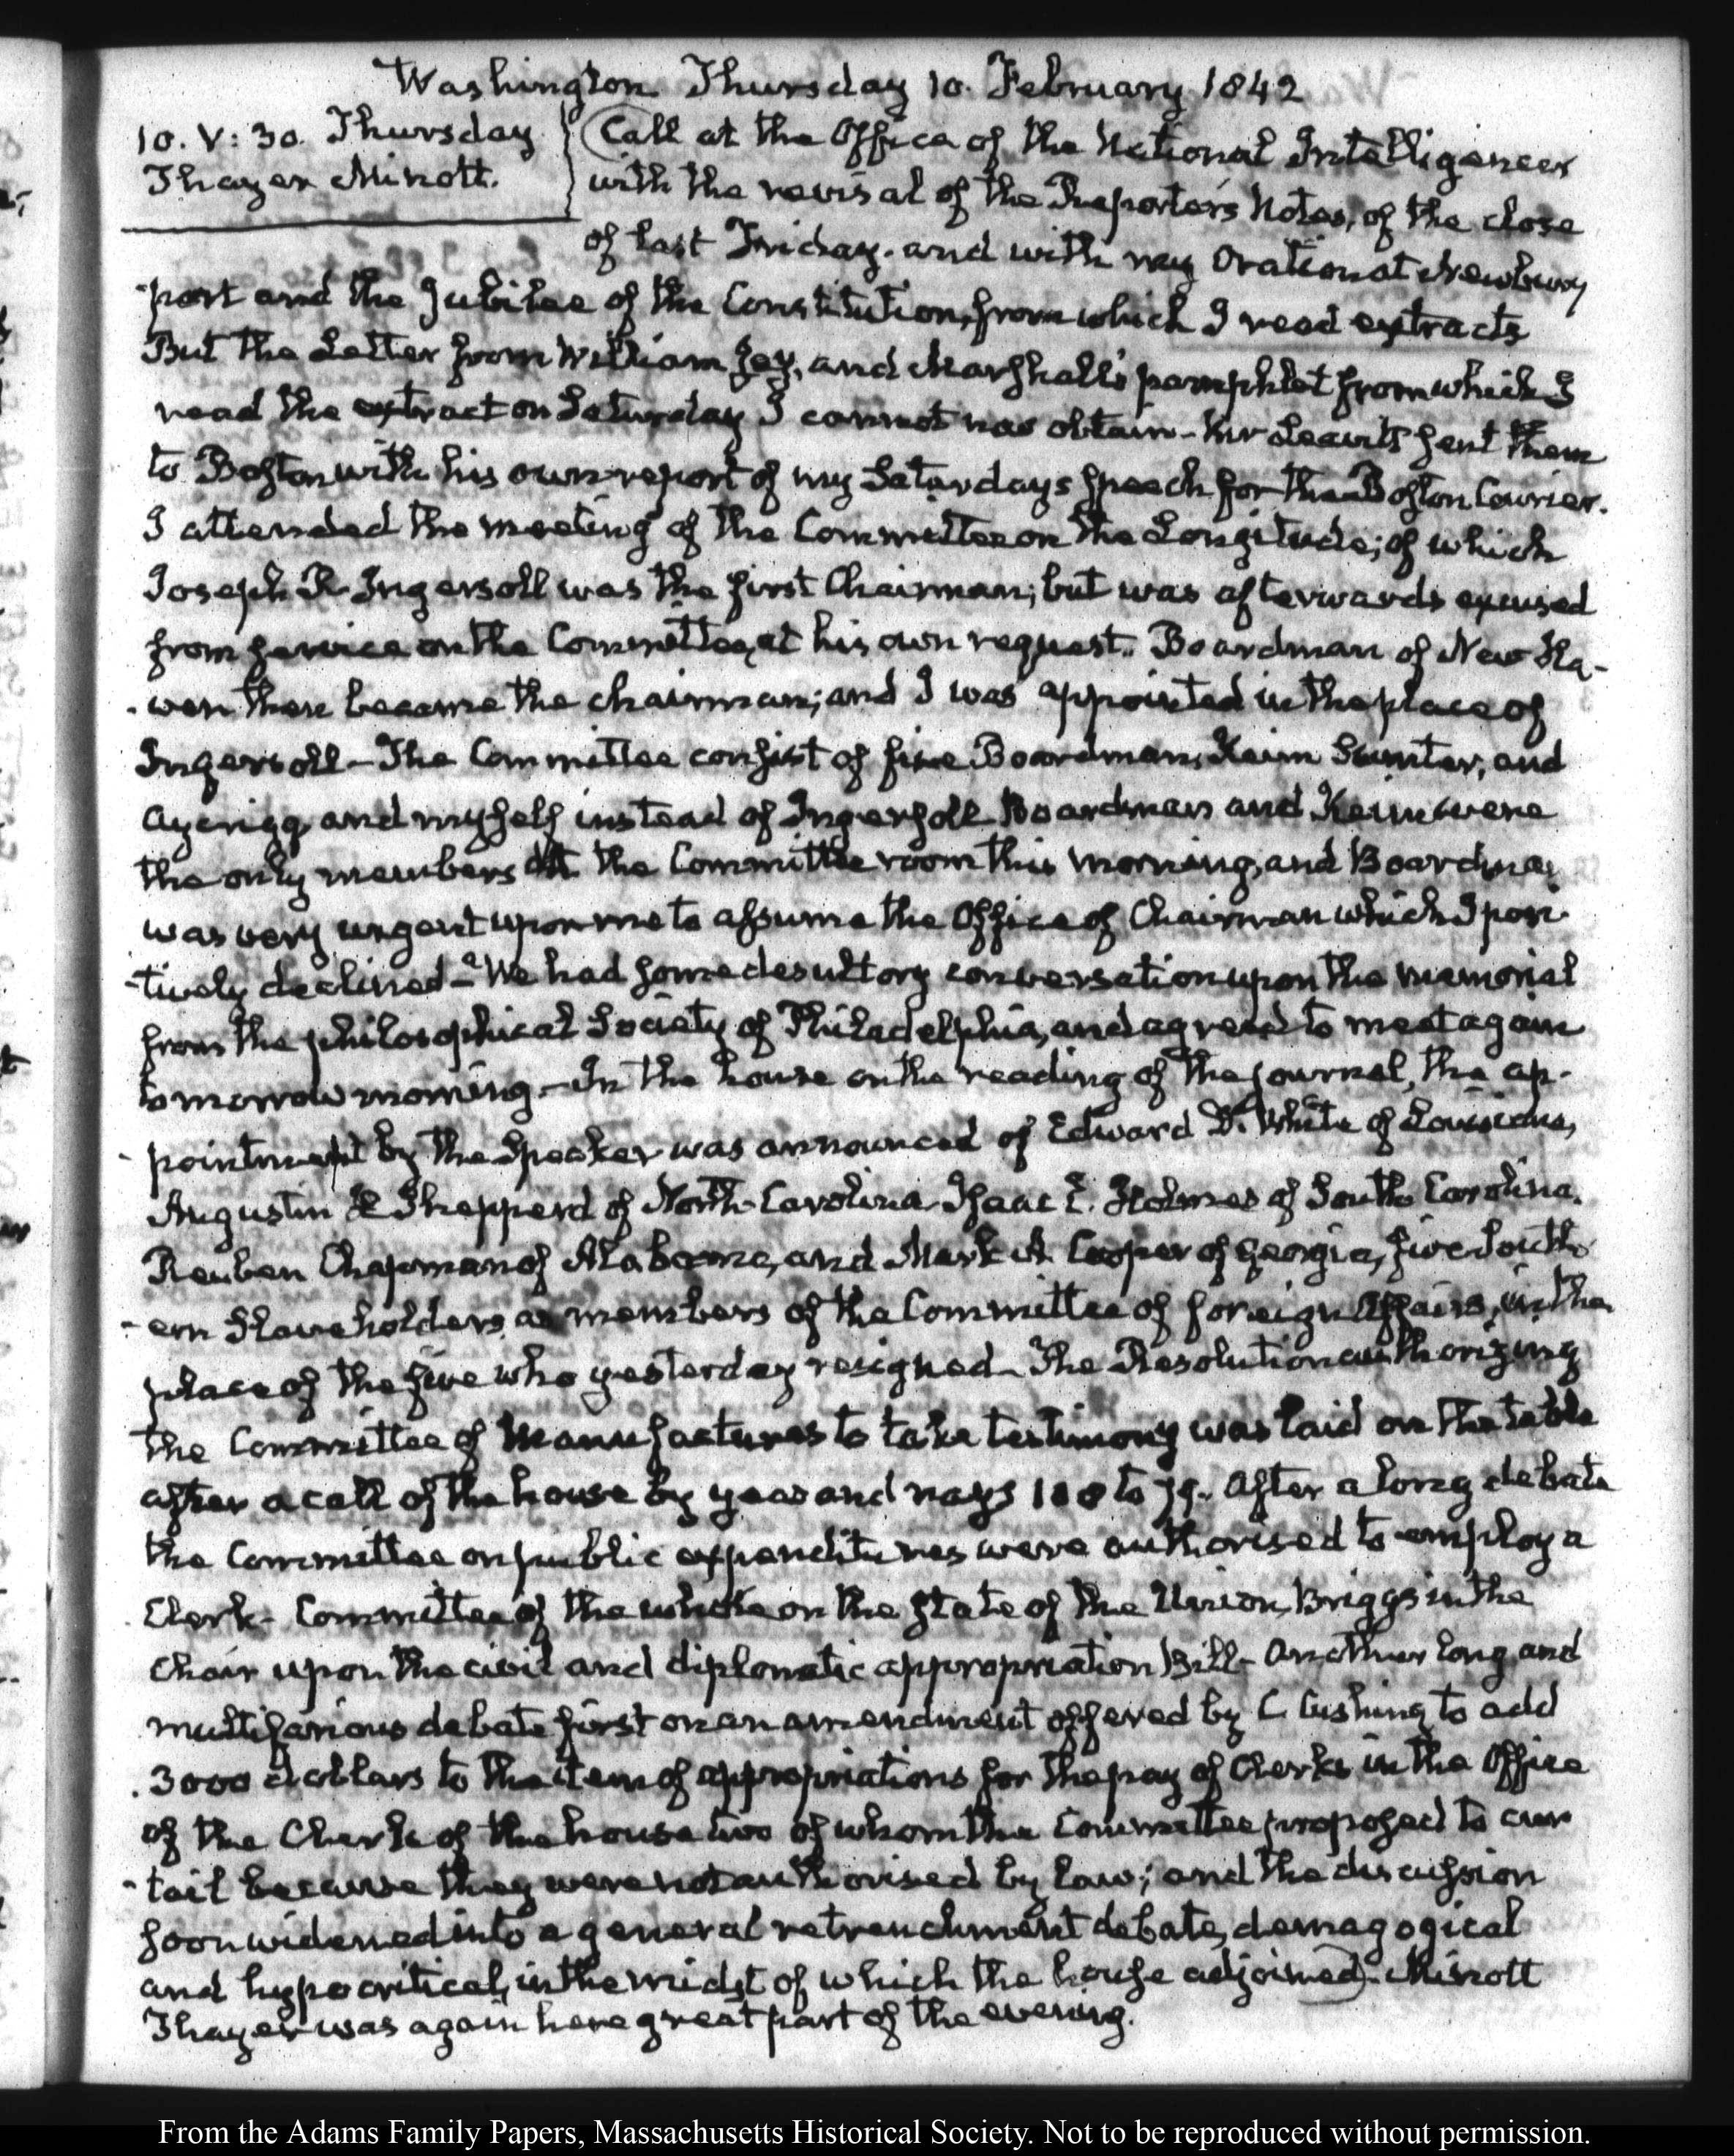 Washington Thursday 10. February 1842
10. V: 30. Thursday
Thayer Minott.
Call at the Office of the National Intelligencer
with the revisal of the Reporter's Notes, of the close
of last Friday. and with my Oration at Newbury
port and the Jubilee of the Constitution, from which I read extracts
But the Letter from William Jay, and Marshall's pamphlet from which I
read the extract on Saturday I cannot now obtain - Mr Leavitt sent them
to Boston with his own report of my Saturdays speech for the Boston Courier.
I attended the meeting of the Committee on the Longitude; of which
Joseph R. Ingersoll was the first Chairman; but was afterwards excused
from service on the Committee, at his own request. Boardman of New Ha-
-ven then became the chairman; and I was appointed in the place of
Ingersoll - The Committee consist of five Boardman, Keim Sumter, and
Aycrigg, and myself instead of Ingersoll Boardman and Keim were
the only members at the Committee room this morning, and Boardman
was very urgent upon me to assume the Office of Chairman which I posi
-tively declined - We had some desultory conversation upon the memorial
from the philosophical Society of Philadelphia, and agreed to meet again
tomorrow morning. - In the house on the reading of the journal, the ap-
-pointment by the Speaker was announced of Edward D. White of Louisiana,
Augustin H Shepperd of North-Carolina Isaac E. Holmes of South Carolina.
Reuben Chapman of Alabama, and Mark A Cooper of Georgia, five South
-ern Slaveholders as members of the Committee of foreign Affairs, in the
place of the five who yesterday resigned - The Resolution authorizing
the Committee of Manufactures to take testimony was laid on the table
after a call of the house by yeas and nays to After a long debate
the Committee on public expenditures were authorised to employ a
Clerk - Committee of the whole on the state of the Union, Briggs in the
Chair upon the civil and diplomatic appropriation Bill - Another long and
multifarious debate first on an amendment offered by C. Cushing to add
3000 dollars to the item of appropriations for the pay of Clerks in the Office
of the Clerk of the house two of whom the Committee proposed to cur
-tail because they were not authorised by law; and the discussion
soon widened into a general retrenchment debate, demagogical
and hypocritical, in the midst of which the house adjourned - Minott
Thayer was again here great part of the evening.
From the Adams Family Papers, Massachusetts Historical Society. Not to be reproduced without permission.